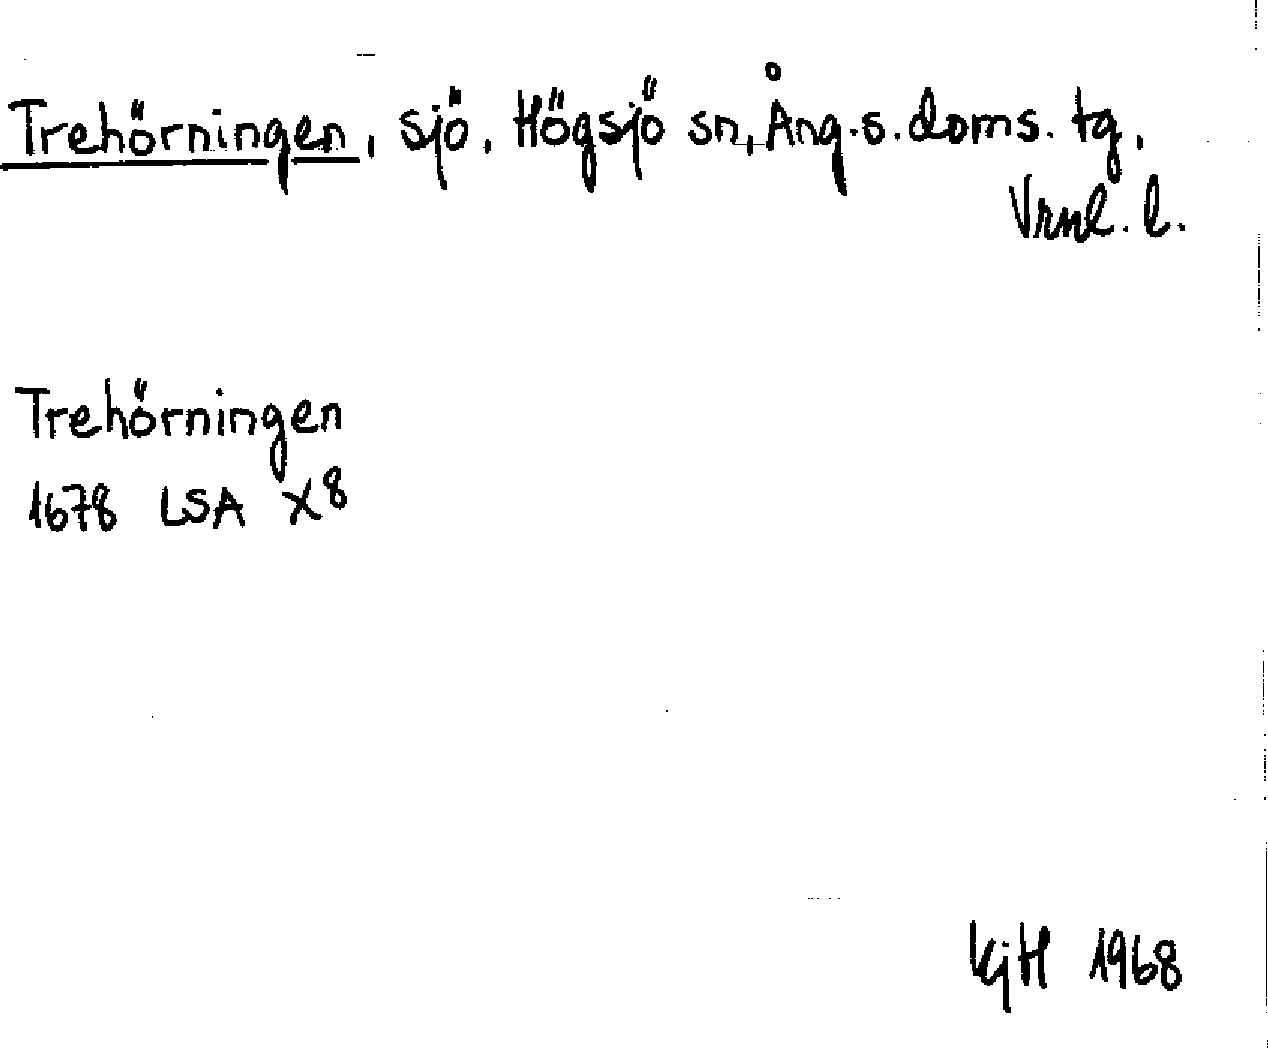 Trehörningen, sjö, Högsjö sn, Ång.s. doms. tg,
Vrnl. l.
Trehörningen
1678 LSA X8
KjH 1968